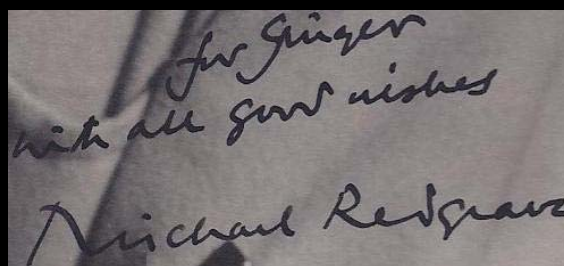 for Ginger
with all good wishes
Michael Redgrave